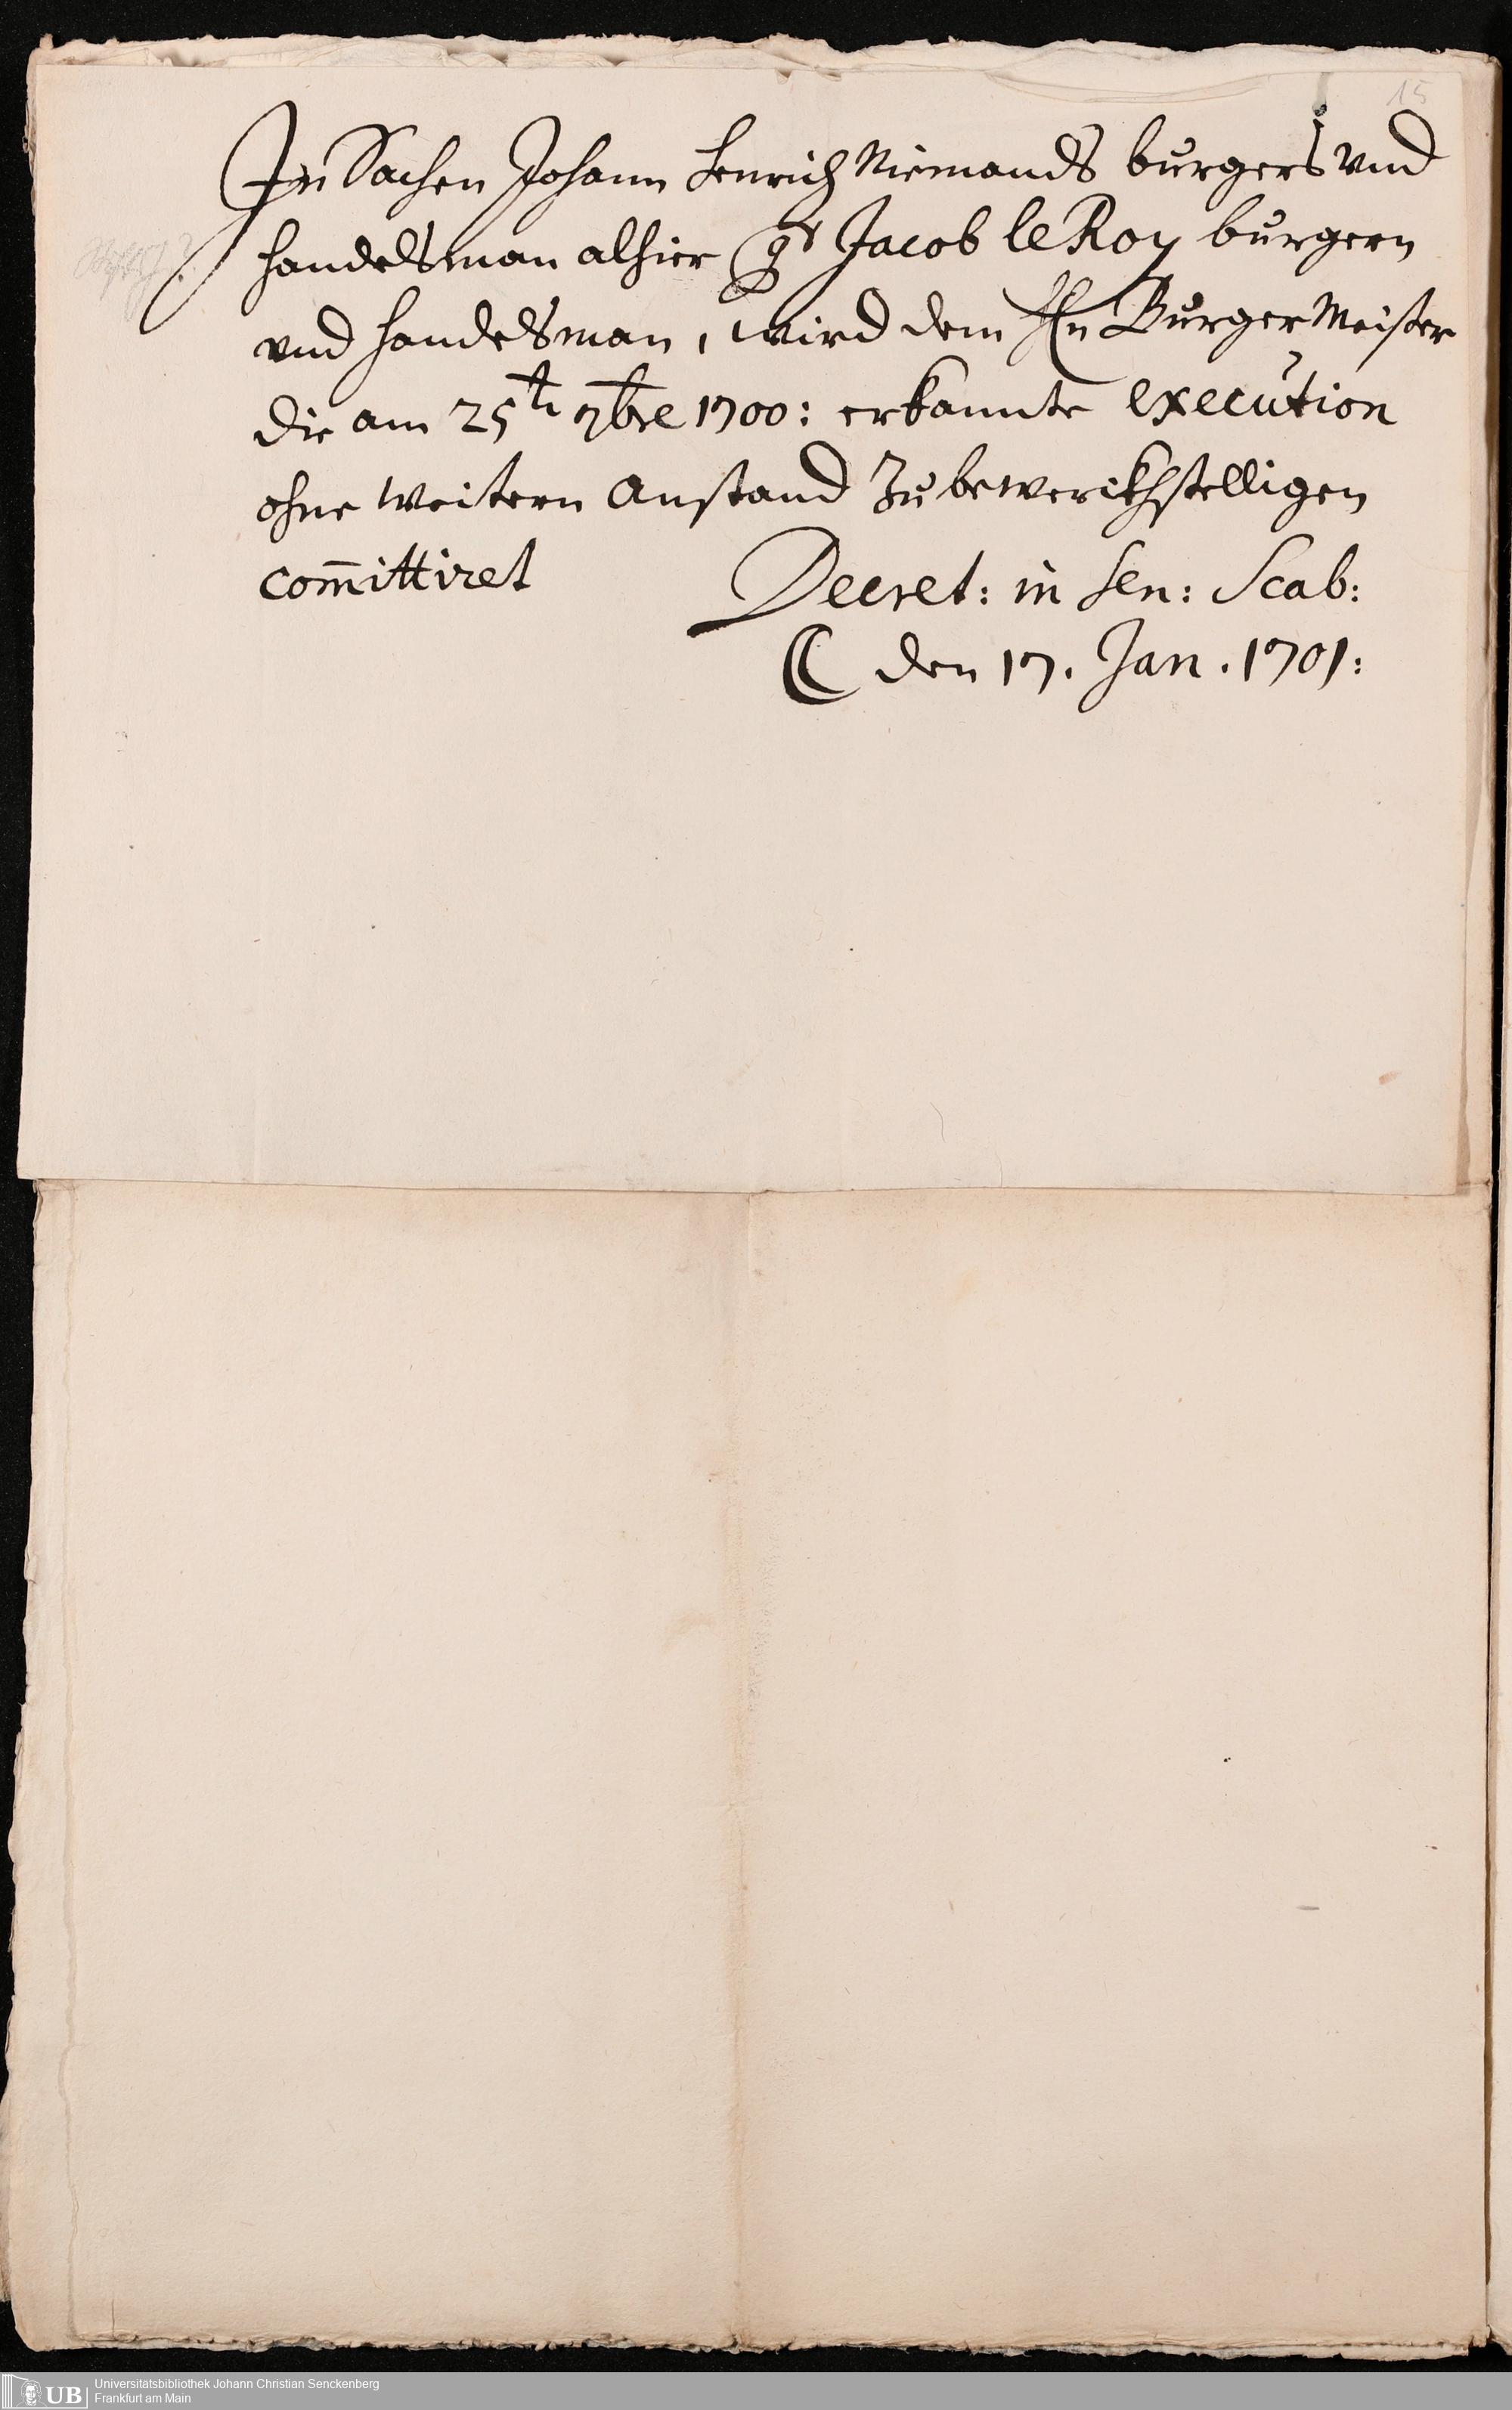 15
In Sachen Johann Henrich Niemands burgers vnd
handelsman alhier gr Jacob le Roy burgern
vnd handelsman, wird dem Hn BurgerMeister
die am 25ten 9bre 1700: erkannte execution
ohne weitern Anstand Zu bewerckhstelligen
com̄ittiret
Decret: in Sen: Scab:
☾ den 17. Jan. 1701:
UB
Universitätsbibliothek Johann Christian Senckenberg
Frankfurt am Main